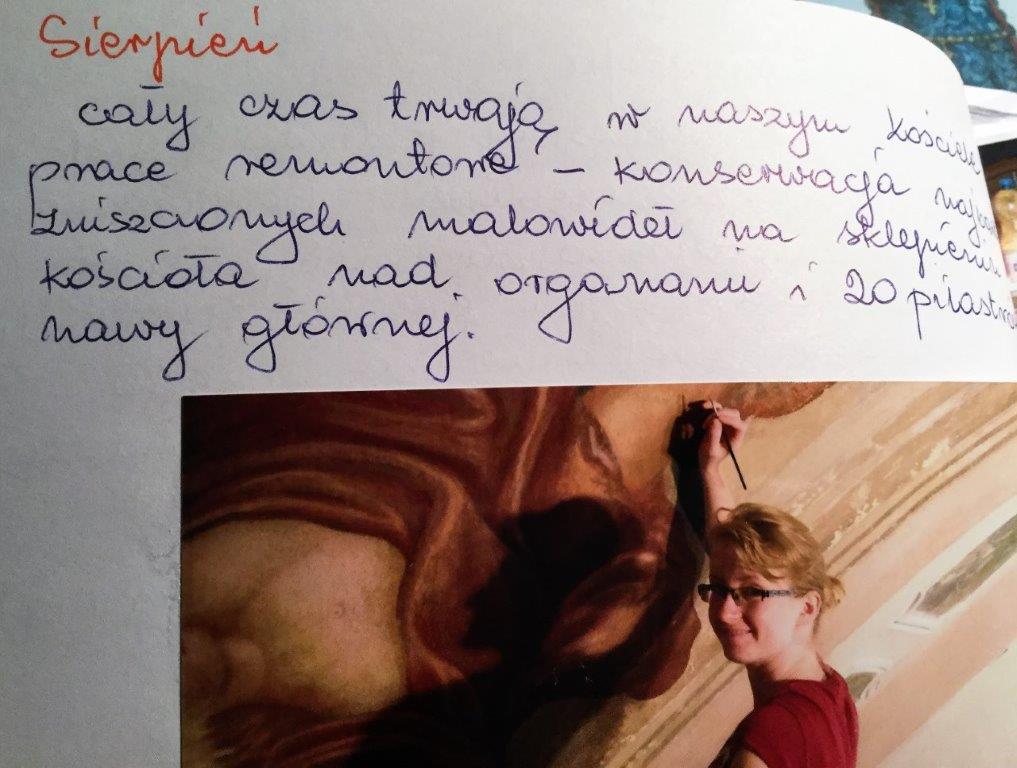 Sierpień
cały czas trwają w naszym kościele
prace remontowe – konserwacja
zniszczonych malowideł na sklepieniu
kościoła nad organami i 20
nawy głównej.